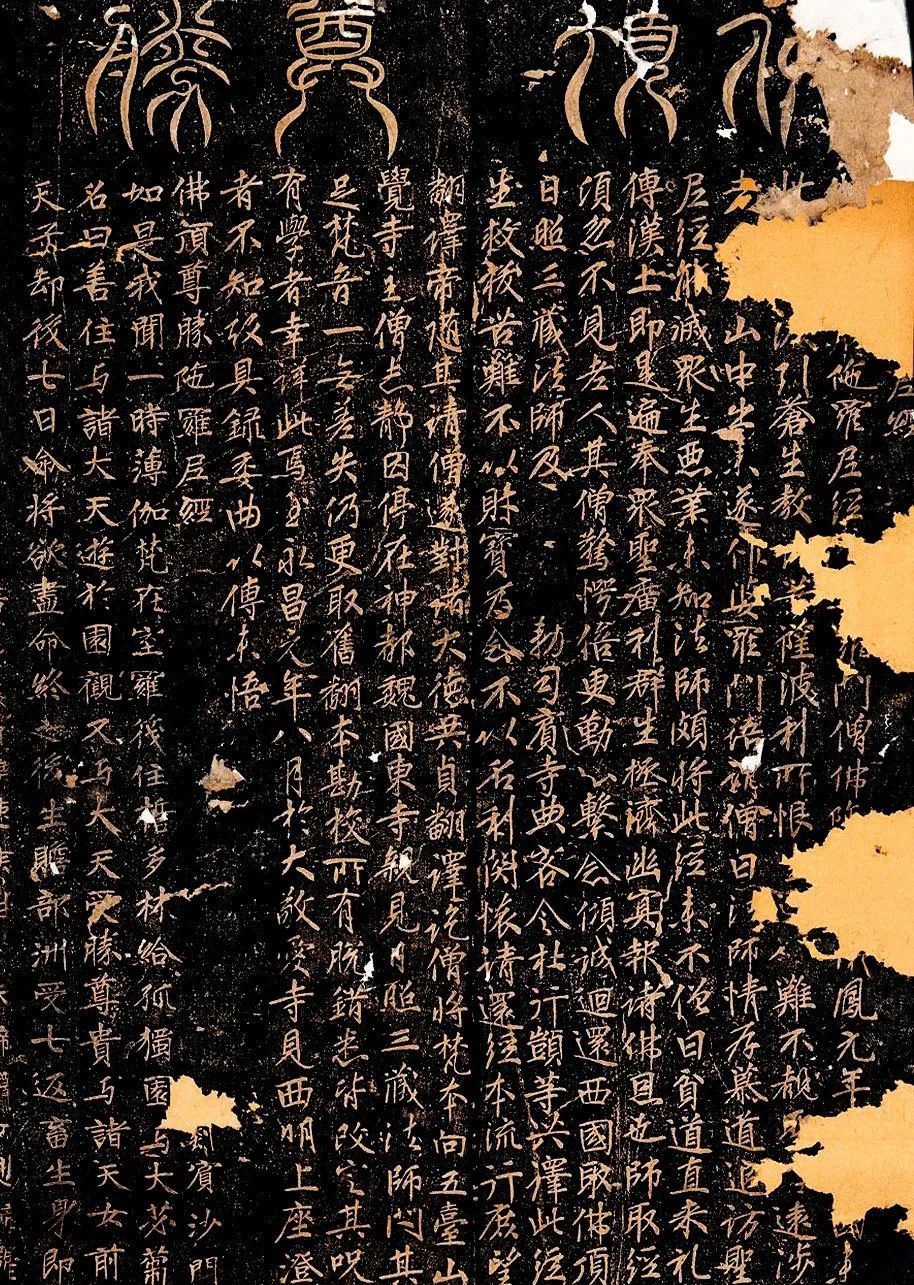 佛頂尊勝
陀羅尼經 門僧佛陀 鳳元年
此 法引蒼生教 波利所恨 難不覩 遠涉
者 山中出來遂作婆羅門語謂僧曰法師情存慕道追訪聖
尼經能滅眾生惡業未知法師頗將此經來不僧曰貧道直來礼
傳漢土即是遍奉眾聖廣利群生拯濟幽冥報諸佛恩也師取經
須臾不見老人其僧驚愕倍更勤心繫念傾誠迴還西國取佛頂
日照三藏法師及 勅司賓寺典客令杜行顗等共譯此經
生救拔苦難不以財寶為念不以名利關懷請還經本流行庶望
翻譯帝隨其請僧遂對諸大德共貞翻譯訖僧將梵本向五臺山
覺寺主僧志靜因停在神都魏國東寺親見日照三藏法師問其
足梵音一無差失仍更取舊翻本勘校所有脫錯悉皆改定其呪
有學者幸詳此焉至永昌元年八月於大敬愛寺見西明上座澄
者不知故具録委曲以傳未悟
佛頂尊勝陁羅尼經 罽賓沙門
如是我聞一時薄伽梵在室羅筏住誓多林給孤獨園与大苾蒭
名曰善住与諸大天遊於園觀又与大天受勝尊貴与諸天女前
天子却後七日命將欲盡命終之後生贍部洲受七返畜生身即